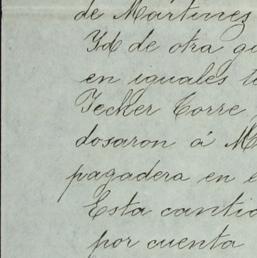 de Martinez
Yd de otra qu
en iguales te
Teckler Torre
dosaron á M
pagadera en e
Esta cantid
por cuenta